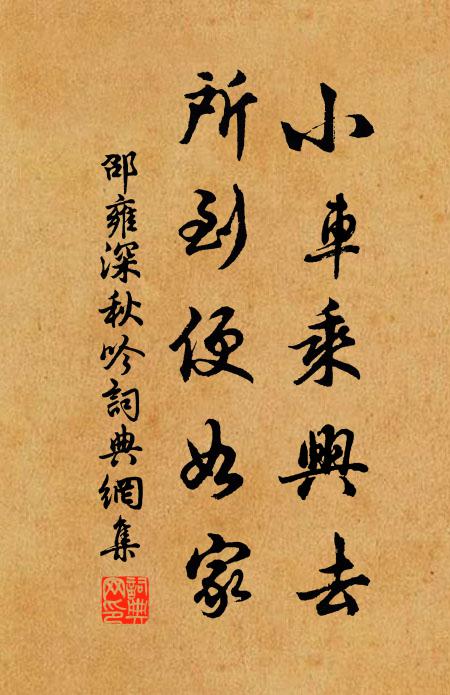 小車乘興去
所到便如家
邵雍深秋吟詞典網集
詞典
网印